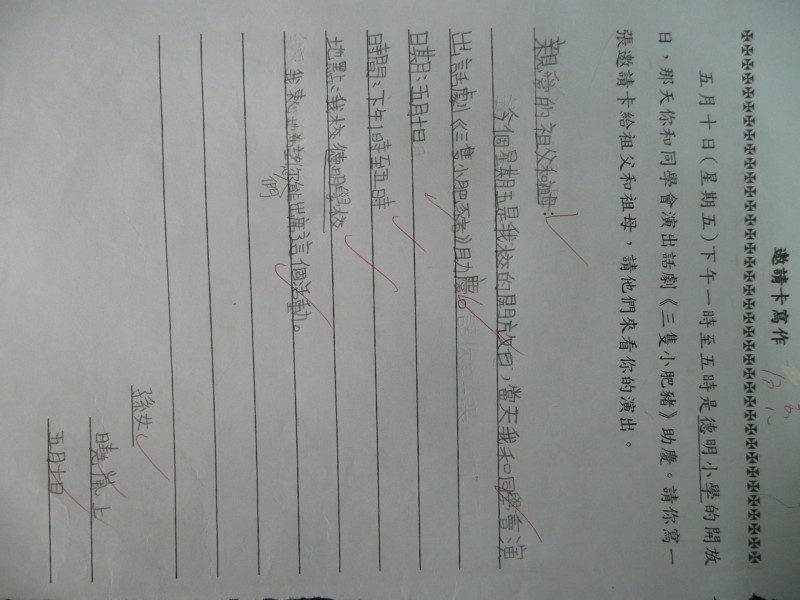 邀請卡寫作
五月十日(星期五)下午一時至五時是德明小學的開放
日，那天你和同學會演出話劇《三隻小肥豬》助慶。請你寫一
張邀請卡給祖父和祖母，請他們來看你的演出。
親愛的祖父和祖母：
今個星期五是我校的開放日，當天我和同學會演
出話劇《三隻小肥豬》助慶。
日期：五月十日
時間：下午1時至五時
地點：我校德明學校
我希望你們能出席這個活動。
孫女
曉嵐上
五月十日